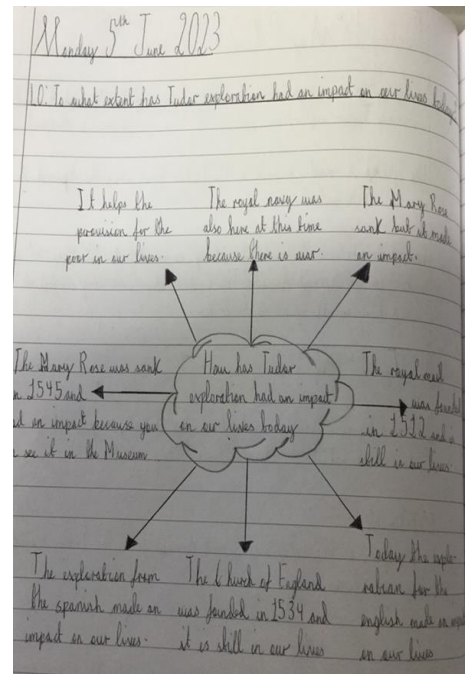 Monday 5th June 2023
L.O: To what extent has Tudor exploration had an impact on our lives today
It helps the
provision for the
poor in our lives.
The royal navy was
also here at this time
because there is war.
The Mary Rose
sank but it made
an impact.
The Mary Rose was sank
in 1545 and
an impact because you
see it in the Museum
How has Tudor
exploration had an impact
on our lives today
The royal mail
was founded
in 1512 and is
still in our lives.
The exploration from
the spanish made an
impact on our lives.
The Church of England
was founded in 1534 and
it is still in our lives
Today the explo-
ration for the
english made an
on our lives